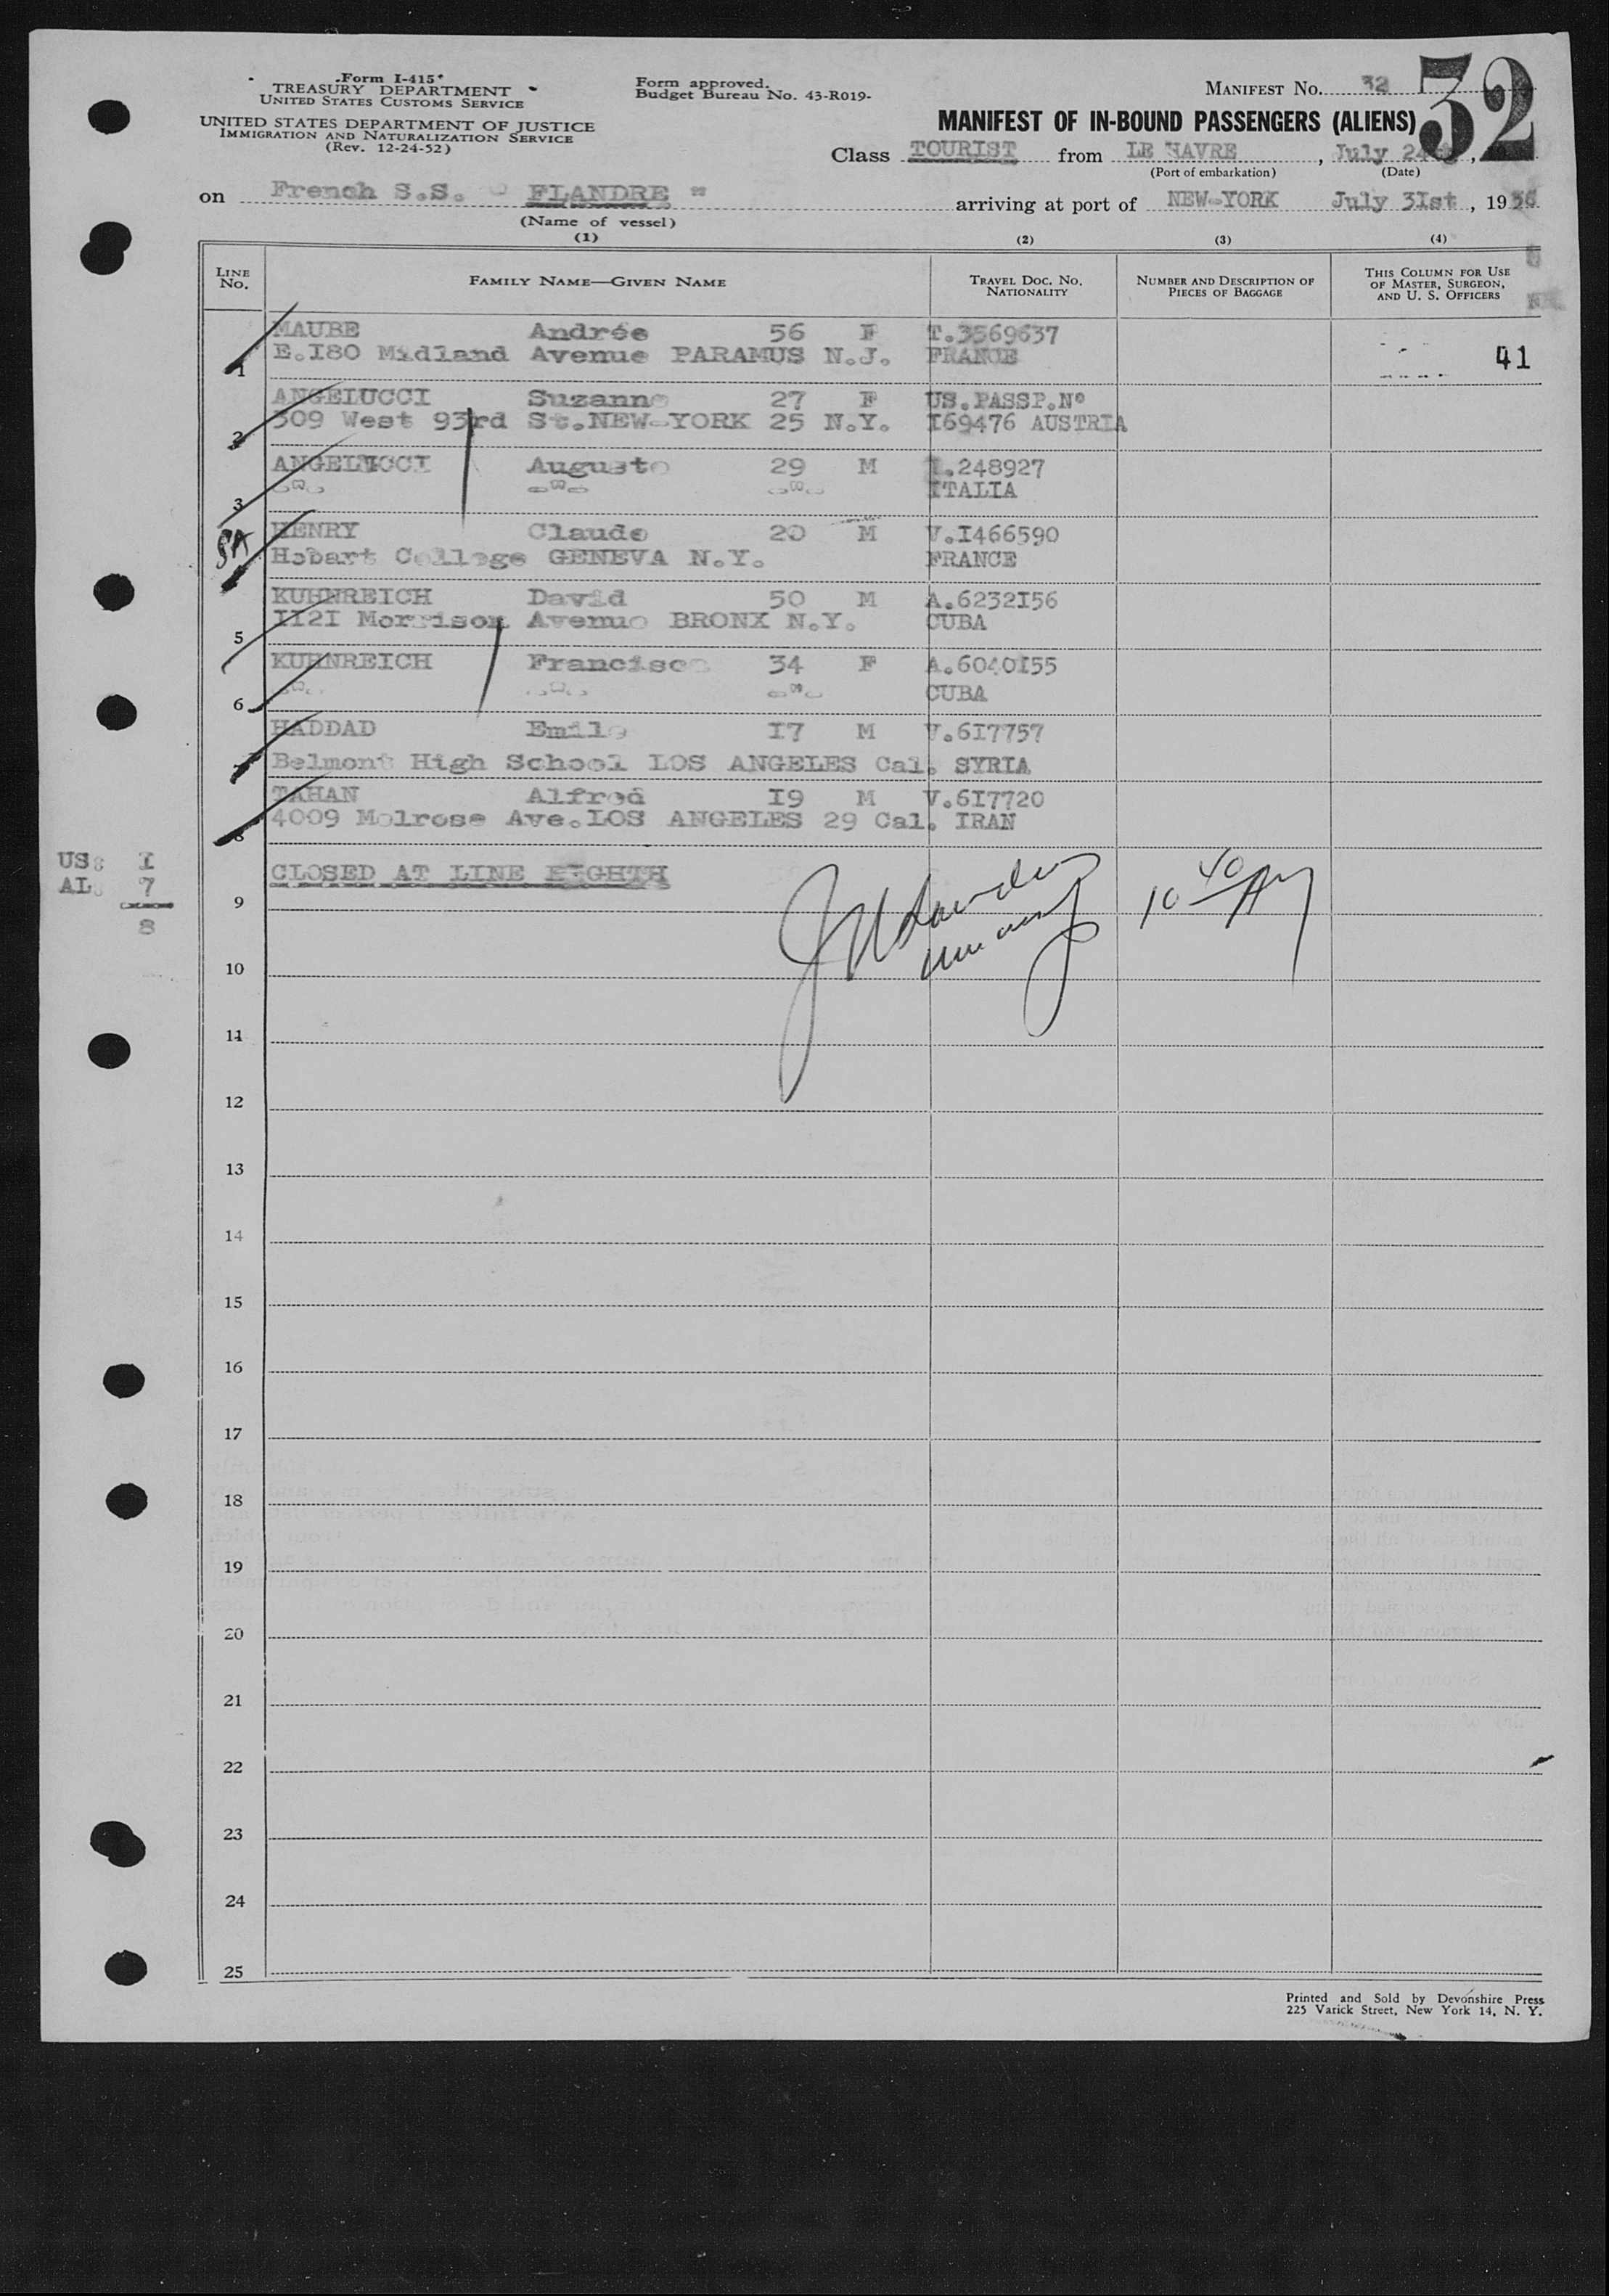 Form I-415
TREASURY DEPARTMENT
UNITED STATES CUSTOMS SERVICE
UNITED STATES DEPARTMENT OF JUSTICE
IMMIGRATION AND NATURALIZATION SERVICE
(Rev. 12-24-52)
Form approved.
Budget Bureau No. 43-R019-
MANIFEST NO. 32
32
MANIFEST OF IN-BOUND PASSENGERS (ALIENS)
Class TOURIST from LE HAVRE, July 24
(Port of embarkation) (Date)
on French S.S. " FLANDRE " arriving at port of NEW-YORK July 3Ist, 19
(Name of vessel)
(1) (2) (3) (4)
LINE No. FAMILY NAME—GIVEN NAME TRAVEL DOC. NO. NATIONALITY NUMBER AND DESCRIPTION OF PIECES OF BAGGAGE THIS COLUMN FOR USE OF MASTER, SURGEON, AND U. S. OFFICERS
MAUBE Andrée 56 F T.3569637
1 E.I80 Midland Avenue PARAMUS N.J. FRANCE 41
ANGELUCCI Suzanne 27 F US.PASSP.N°
2 309 West 93rd St.NEW-YORK 25 N.Y. I69476 AUSTRIA
ANGELUCCI Augusto 29 M I.248927
3 -"- -"- -"- ITALIA
HENRY Claude 20 M V.I466590
Hobart College GENEVA N.Y. FRANCE
KUHNREICH David 50 M A.6232I56
5 II2I Morrison Avenue BRONX N.Y. CUBA
KUHNREICH Francisco 34 F A.6040I55
6 -"- -"- -"- CUBA
HADDAD Emile I7 M V.6I7757
7 Belmont High School LOS ANGELES Cal. SYRIA
TAHAN Alfred I9 M V.6I7720
8 4009 Melrose Ave.LOS ANGELES 29 Cal. IRAN
US: I
AL: 7
8
CLOSED AT LINE EIGHTH
10 40 AM
9
10
11
12
13
14
15
16
17
18
19
20
21
22
23
24
25
Printed and Sold by Devonshire Press
225 Varick Street, New York 14, N. Y.